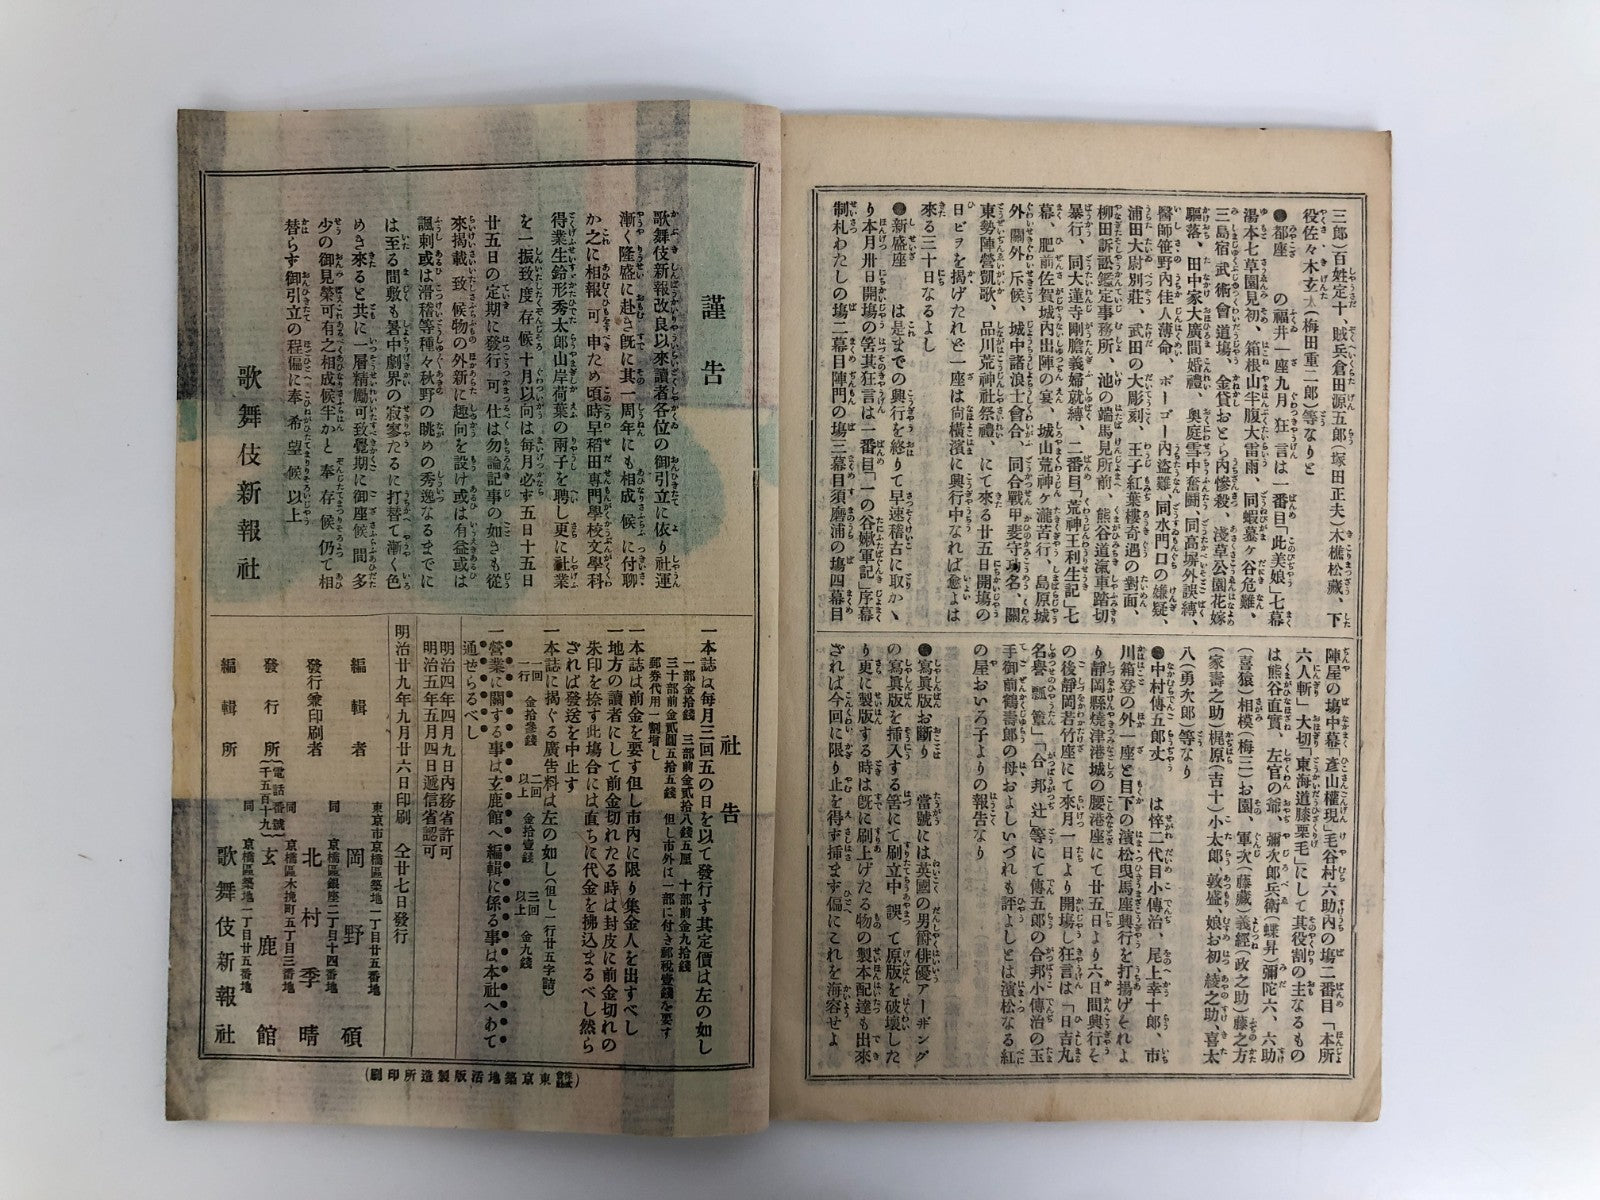 三郎)百姓定十、賊兵倉田源五郎(塚田正夫)木樵松藏、下
役佐々木玄太(梅田重二郎)等なりと
●都座 の福井一座九月狂言は一番目「此美娘」七幕
湯本七草園見初、箱根山半腹大雷雨、同蝦蟇ヶ谷危難、
三島宿武術會道場、金貸おとら内慘殺、淺草公園花嫁
驅落、田中家大廣間婚禮、奥庭雪中奮鬪、同高塀外誤縛、
醫師笹野内佳人薄命、ボーゴー内盜難、同水門口の嫌疑、
浦田大尉別莊、武田の大彫刻、王子紅葉樓奇遇の對面、
柳田訴訟鑑定事務所、池の端馬見所前、熊谷道滊車踏切
暴行、同大蓮寺剛膽義婦就縛、二番目「荒神王利生記」七
幕、肥前佐賀城内出陣の宴、城山荒神ヶ瀧苦行、島原城
外、關外斥候、城中諸浪士會合、同合戰甲斐守功名、關
東勢陣營凱歌、品川荒神社祭禮、にて來る廿五日開塲の
日ビヲを揭げたれど一座は尚横濱に興行中なれば愈よは
來る三十日なるよし
●新盛座 は是までの興行を終りて早速稽古に取かゝ
り本月卅日開塲の筈其狂言は一番目「一の谷嫩軍記」序幕
制札わたしの塲二幕目陣門の塲三幕目須磨浦の塲四幕目
陣屋の塲中幕「彦山權現」毛谷村六助内の塲二番目「本所
六人斬」大切「東海道膝栗毛」にして其役割の主なるもの
は熊谷直實、左官の爺、彌次郎兵衛(蝶昇)彌陀六、六助
(喜猿)相模(梅三)お園、軍次(藤藏)義經(政之助)藤之方
(家壽之助)梶原(吉十)小太郎、敦盛、娘お初、綾之助、喜太
八(勇次郎)等なり
●中村傳五郎丈 は悴二代目小傳治、尾上幸十郎、市
川箱登の外一座と目下の濱松曳馬座興行を打揚げそれよ
り靜岡縣燒津港城の腰港座にて廿五日より六日間興行そ
の後靜岡若竹座にて來月一日より開塲し狂言は「日吉丸
名譽瓢簞」「合邦辻」等にて傳五郎の合邦小傳治の玉
手御前鶴壽郎の母およしいづれも評よしとは濱松なる紅
の屋おいろ子よりの報告なり
●寫眞版お斷り 當號には英國の男爵俳優アーボング
の寫眞版を挿入する筈にて刷立中誤て原版を破壞した
り更に製版する時は既に刷上げたる物の製本配達も出來
ざれば今回に限り止を得ず挿まず偏にこれを海容せよ
謹告
歌舞伎新報改良以來讀者各位の御引立に依り社運
漸く隆盛に赴き既に其一周年にも相成候に付聊
か之に相報可申ため頃時早稻田專門學校文學科
得業生鈴形秀太郎山岸荷葉の兩子を聘し更に社業
を一振致度存候十月以向は毎月必ず五日十五日
廿五日の定期に發行可仕は勿論記事の如きも從
來揭載致候物の外新に趣向を設け或は有益或は
諷刺或は滑稽等種々秋野の眺めの秀逸なるまでに
は至る間敷も暑中劇界の寂寥たるに打替て漸く色
めき來ると共に一層精勵可致覺期に御座候間多
少の御見榮可有之相成候半かと奉存候仍て相
替らず御引立の程偏に奉希望候以上
歌舞伎新報社
社告
一本誌は毎月三回五の日を以て發行す其定價は左の如し
一部金拾錢 三部前金貳拾八錢五厘 十部前金九拾錢
三十部前金貳圓五拾五錢 但し市外は一部に付き郵税壹錢を要す
郵券代用一割增し
一本誌は前金を要す但し市内に限り集金人を出すべし
一地方の讀者にして前金切れたる時は封皮に前金切れの
朱印を捺す此塲合には直ちに代金を拂込まるべし然ら
ざれば發送を中止す
一本誌に揭ぐる廣告料は左の如し(但し一行廿五字詰)
一回一行 金拾參錢 二回以上 金拾壹錢 三回以上 金九錢
一營業に關する事は玄鹿館へ編輯に係る事は本社へあて
通せらるべし
明治四年四月九日内務省許可
明治五年五月四日遞信省認可
明治廿九年九月廿六日印刷 仝廿七日發行
東京市京橋區築地一丁目廿五番地
編輯者 岡野碩
同京橋區銀座二丁目十四番地
發行兼印刷者 北村季晴
同京橋區木挽町五丁目三番地
發行所(電話番號千五百十九) 玄鹿館
同京橋區築地一丁目廿五番地
編輯所 歌舞伎新報社
(株式會社東京築地活版製造所印刷)